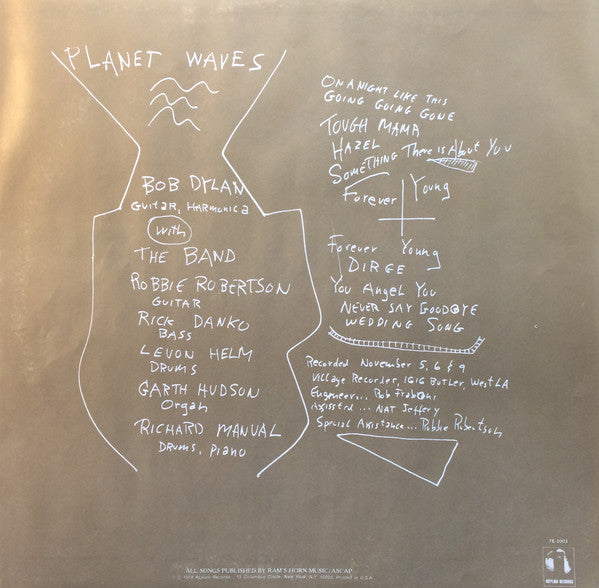 PLANET WAVES
BOB DYLAN
GUITAR, HARMONICA
with
THE BAND
ROBBIE ROBERTSON
GUITAR
RICK DANKO
BASS
LEVON HELM
DRUMS
GARTH HUDSON
Organ
RICHARD MANUAL
DRUMS, piano
ON A NIGHT LIKE THIS
GOING GOING GONE
TOUGH MAMA
HAZEL
SOMETHING There is About You
Forever Young
Forever Young
DIRGE
You Angel You
NEVER SAY GOODBYE
WEDDING SONG
Recorded November 5, 6 & 9
Village Recorder, 1616 Butler, West LA
Engineer... Rob Fraboni
Assisted... NAT Jeffery
Special Assistance... Robbie Robertson
7E-1003
ASYLUM RECORDS
ALL SONGS PUBLISHED BY RAM'S HORN MUSIC/ASCAP
© 1974 Asylum Records 15 Columbus Circle, New York, N.Y. 10023 Printed in U.S.A.